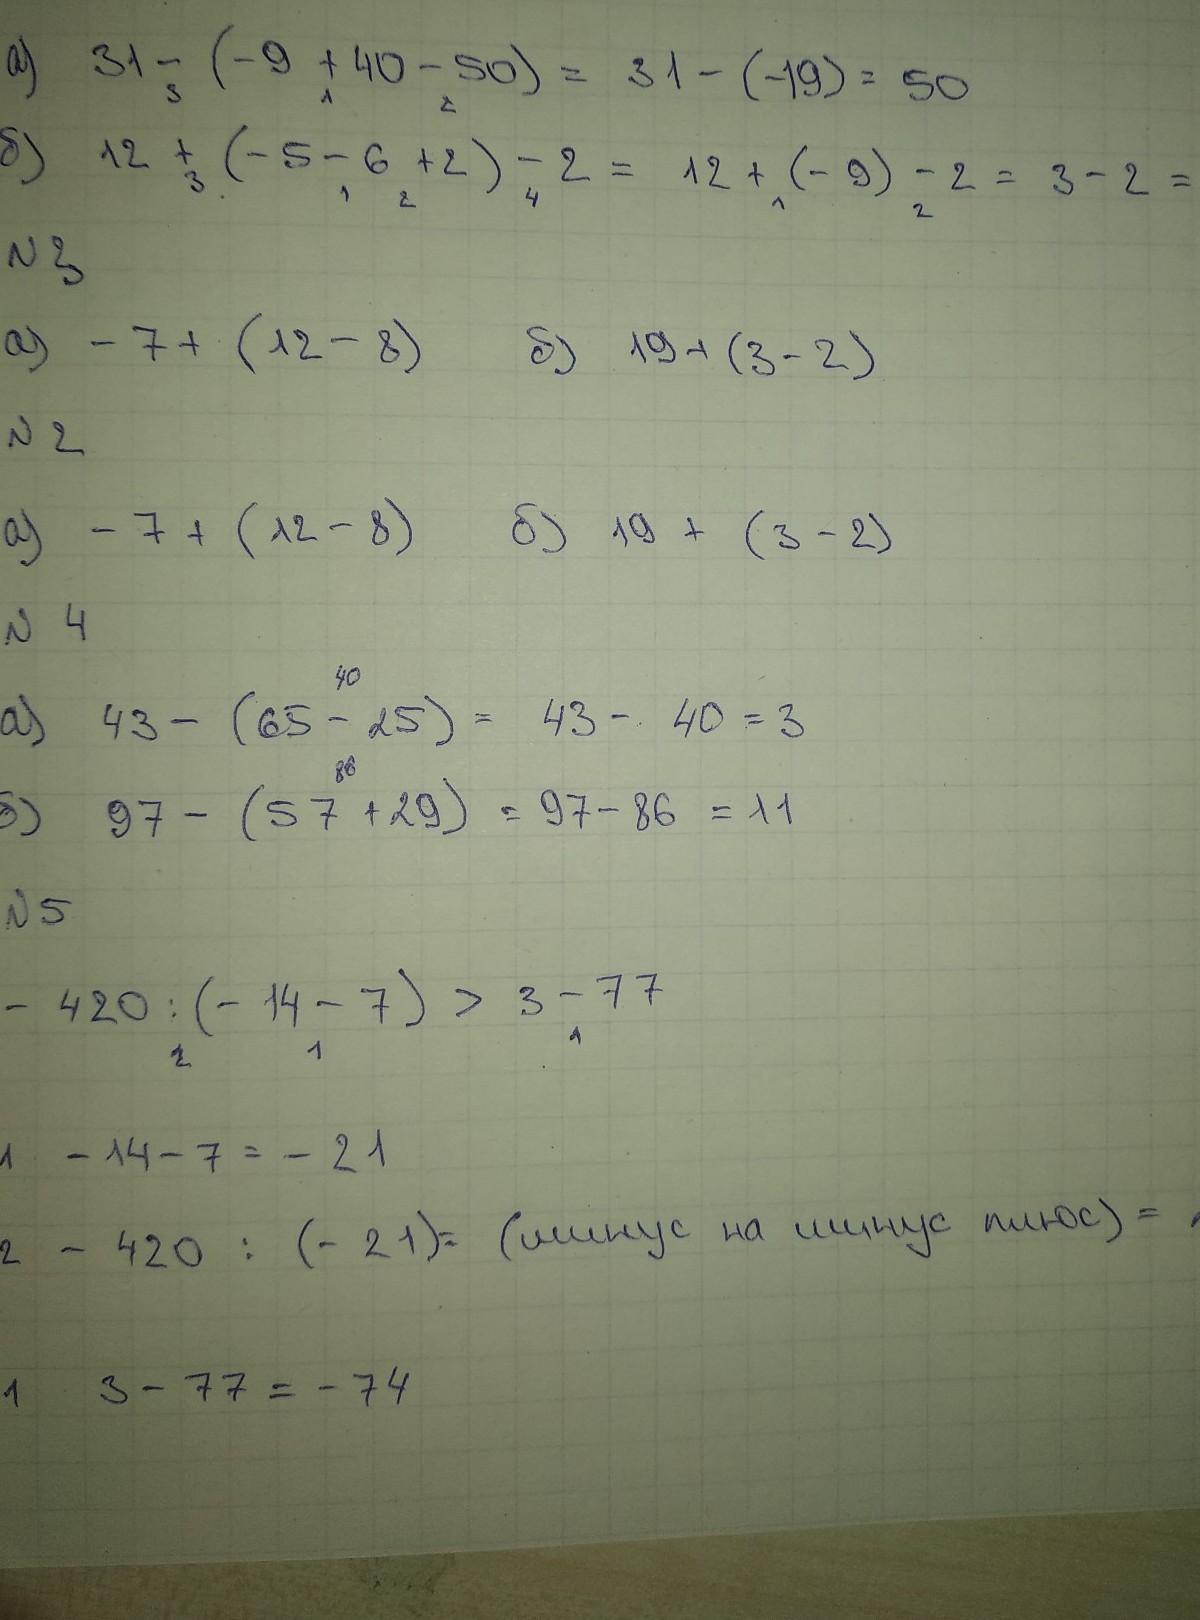 а) 31 - (-9 + 40 - 50) = 31 - (-19) = 50
3 1 2
б) 12 + (-5 - 6 + 2) - 2 = 12 + (-9) - 2 = 3 - 2 =
3 1 2 4 1 2
N 3
а) -7 + (12 - 8) б) 19 + (3 - 2)
N 2
а) -7 + (12 - 8) б) 19 + (3 - 2)
N 4
40
а) 43 - (65 - 25) = 43 - 40 = 3
86
б) 97 - (57 + 29) = 97 - 86 = 11
N 5
- 420 : (- 14 - 7) > 3 - 77
2 1 1
1 - 14 - 7 = - 21
2 - 420 : (- 21) = (минус на минус плюс) =
1 3 - 77 = - 74